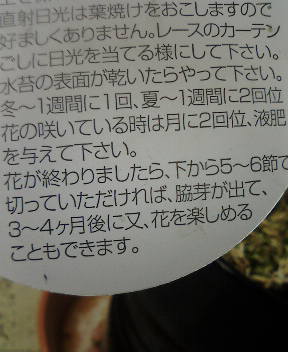 直射日光は葉焼けをおこしますので
好ましくありません。レースのカーテン
ごしに日光を当てる様にして下さい。
水苔の表面が乾いたらやって下さい。
冬〜1週間に1回、夏〜1週間に2回位
花の咲いている時は月に2回位、液肥
を与えて下さい。
花が終わりましたら、下から5〜6節で
切っていただければ、脇芽が出て、
3〜4ヶ月後に又、花を楽しめる
こともできます。